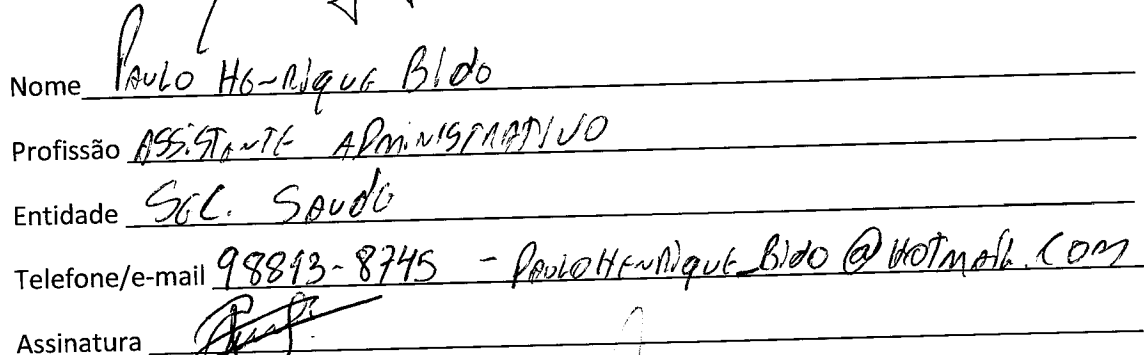 Nome Paulo Henrique Bido
Profissão Assistente Administrativo
Entidade Sec. Saude
Telefone/e-mail 98813-8745 - Paulohenrique_Bido@hotmail.com
Assinatura